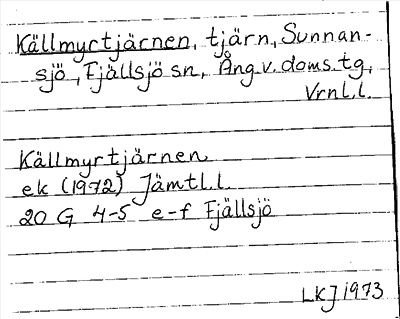 Källmyrtjärnen, tjärn, Sunnan-
sjö, Fjällsjö sn, Ång.v.doms.tg,
Vrnl.l.
Källmyrtjärnen
ek (1972) Jämtl.l.
20 G 4-5 e-f Fjällsjö
LKJ 1973